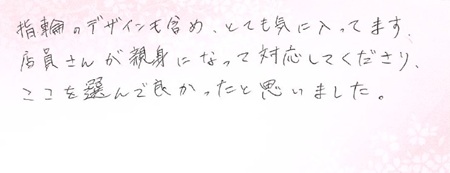 指輪のデザインも含め、とても気に入ってます、
店員さんが親身になって対応してくださり、
ここを選んで良かったと思いました。